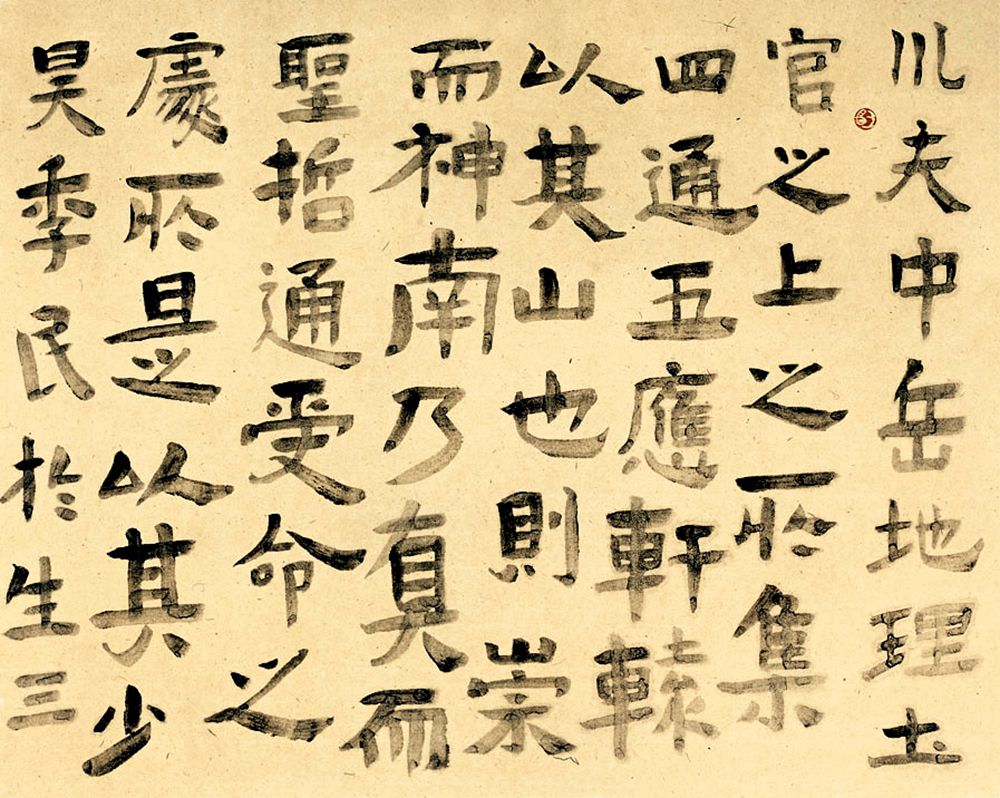 川夫中岳地理土
官之上之所集
四通五應軒轅
以其山也則崇
而神南乃真而
聖哲通受命之
處所是以其少
昊季民於生三